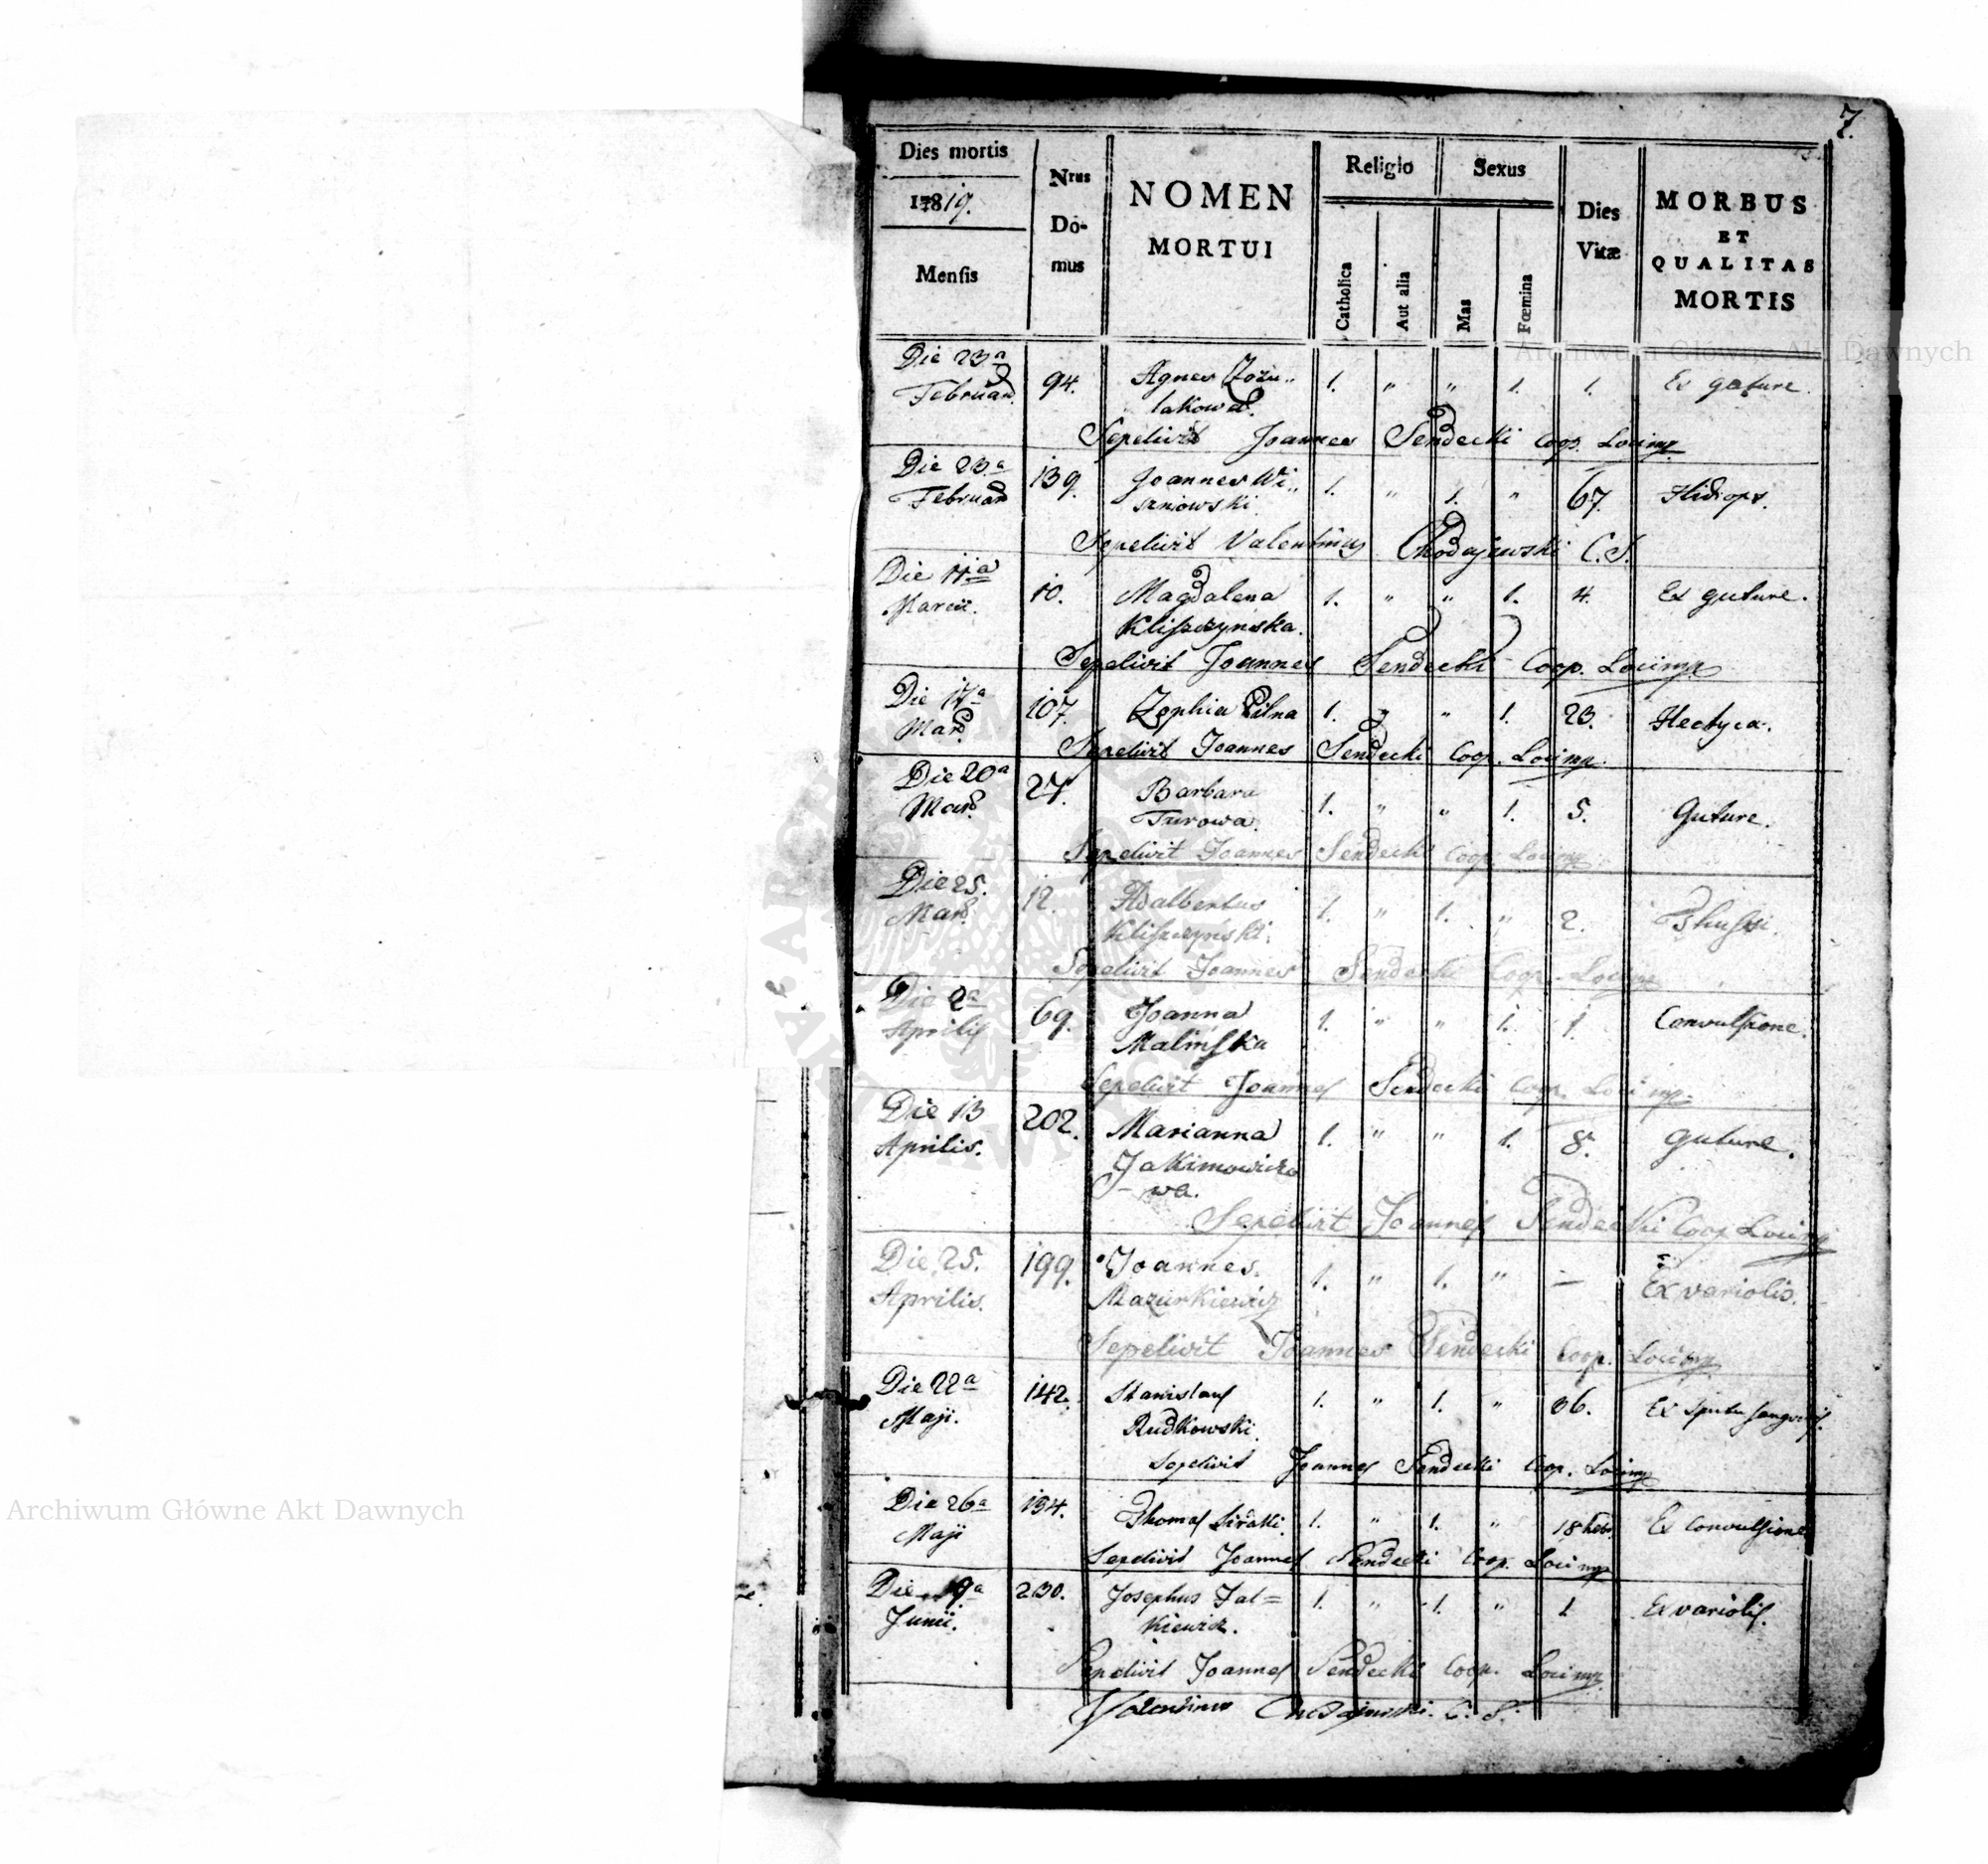 7.
Dies mortis
1819.
Mensis
Nrus
Do-
mus
NOMEN
MORTUI
Religio
Catholica
Aut alia
Sexus
Mas
Fœmina
Dies
Vitæ
MORBUS
ET
QUALITAS
MORTIS
Archiwum Główne Akt Dawnych
Die 23a 94. Agnes 1. " " 1. 1. Ex guture.
Februar. lakowa.
Sepelivit Joannes Sendecki Coop. Loci mp
Die 23a 139. Joannes Wi" 1. " 1. " 67. Hidrops.
Februar szniowski.
Sepelivit Valentinus Chodajewski C. S.
Die 11a 10. Magdalena 1. " " 1. 4. Ex guture.
Marcii. Kliszczynska.
Sepelivit Joannes Sendecki Coop. Loci mp
Die 17a 107. Zophia Pilna 1. " " 1. 23. Hectyca.
Mar.
Sepelivit Joannes Sendecki Coop. Loci mp
Die 20a 27. Barbara 1. " " 1. 5. Guture.
Mar. Turowa.
Sepelivit Joannes Sendecki Coop. Loci mp
Die 25. 12. Adalbertus 1. " 1. " 2.
Mar. Kliszczyński.
Sepelivit Joannes Sendecki Coop. Loci mp
Die 2a 69. Joanna 1. " " 1. 1. Convulsione.
Aprilis Malinska
Sepelivit Joannes Sendecki Coop. Loci mp
Die 13 202. Marianna 1. " " 1. 8. guture.
Aprilis. Jakimowiczo
wa.
Sepelivit Joannes Sendecki Coop Loci mp
Die 25. 199. Joannes 1. " 1. " — Ex variolis.
Aprilis. Mazurkiewicz
Sepelivit Joannes Sendecki Coop. Loci mp
Die 22a 142. Stanislaus 1. " 1. " 36. Ex Sputu sangvinis.
Maji. Rudkowski.
Sepelivit Joannes Sendecki Coop. Loci mp
Die 26a 134. Thomas 1. " 1. " 18 hebd Ex Convulsione
Maji
Sepelivit Joannes Sendecki Coop. Loci mp
Die 19a 230. Josephus Fal= 1. " 1. " 1 Ex variolis.
Junii. kiewicz.
Sepelivit Joannes Sendecki Coop. Loci mp
Valentinus Chodajewski. C. S.
Archiwum Główne Akt Dawnych